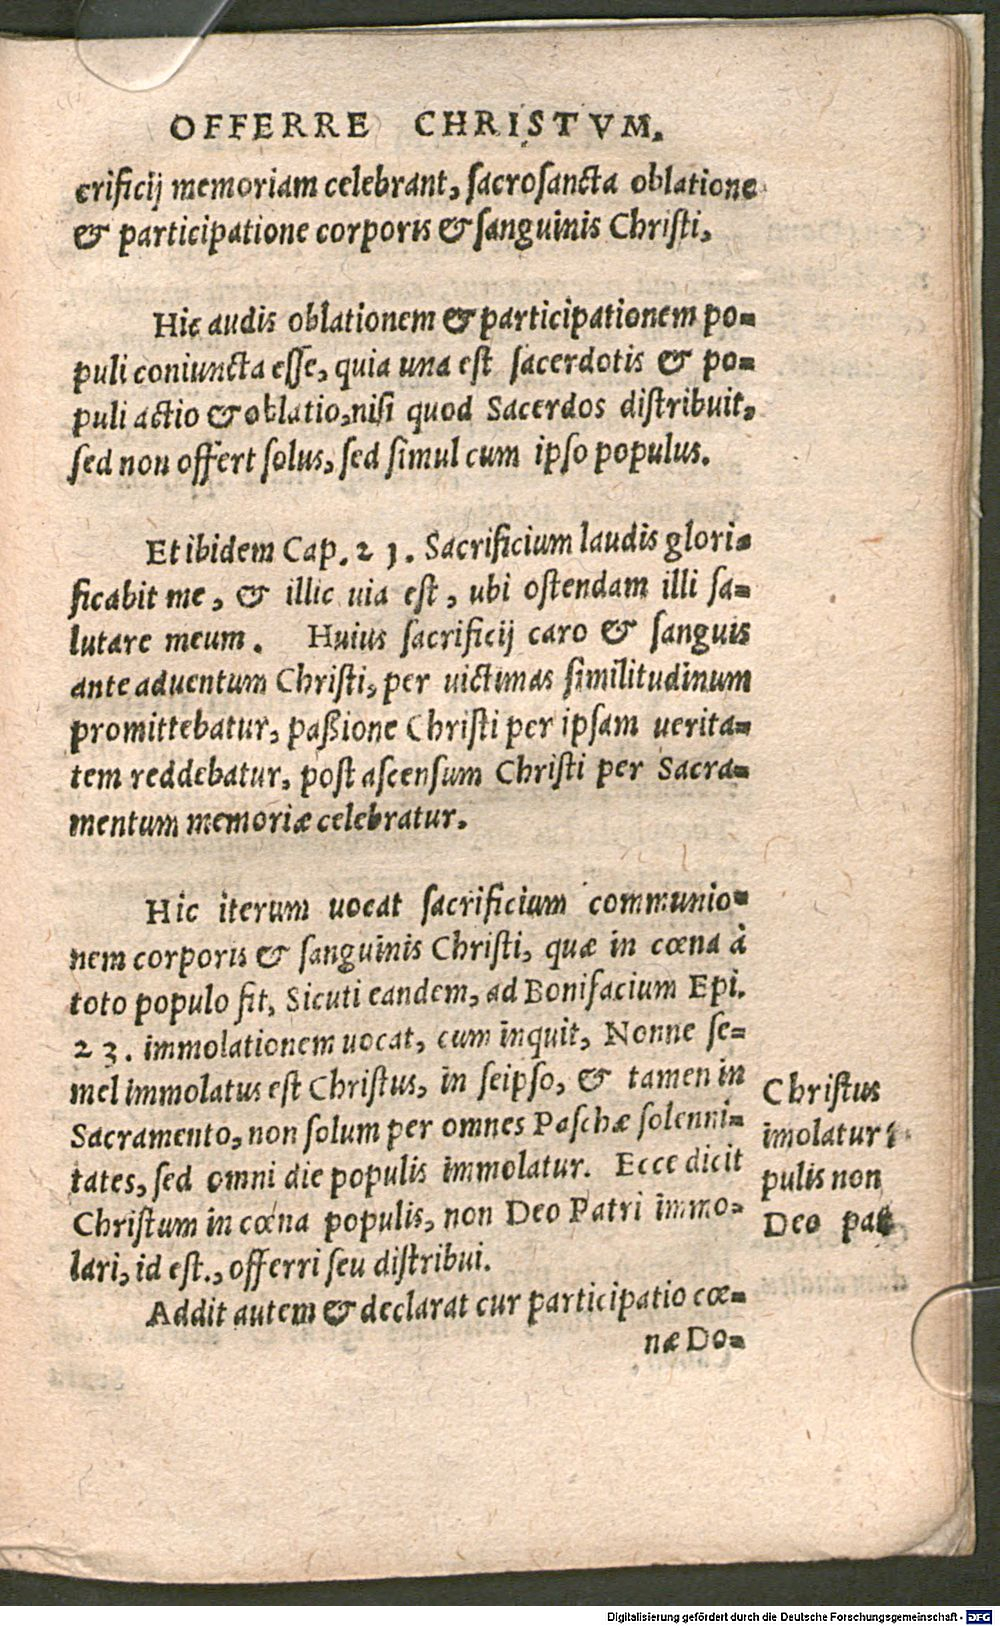 OFFERRE CHRISTVM.
crificij memoriam celebrant, sacrosancta oblatione
& participatione corporis & sanguinis Christi,
Hic audis oblationem & participationem po=
puli coniuncta esse, quia una est sacerdotis & po=
puli actio & oblatio, nisi quod Sacerdos distribuit,
sed non offert solus, sed simul cum ipso populus.
Et ibidem Cap. 21. Sacrificium laudis glori=
ficabit me, & illic uia est, ubi ostendam illi sa=
lutare meum. Huius sacrificij caro & sanguis
ante aduentum Christi, per uictimas similitudinum
promittebatur, paßione Christi per ipsam uerita=
tem reddebatur, post ascensum Christi per Sacra=
mentum memoriæ celebratur.
Hic iterum uocat sacrificium communio=
nem corporis & sanguinis Christi, quæ in cœna à
toto populo fit, Sicuti eandem, ad Bonifacium Epi.
23. immolationem uocat, cum inquit, Nonne se=
mel immolatus est Christus, in seipso, & tamen in
Sacramento, non solum per omnes Paschæ solenni=
tates, sed omni die populis immolatur. Ecce dicit
Christum in cœna populis, non Deo Patri immo=
lari, id est., offerri seu distribui.
Addit autem & declarat cur participatio cœ=
næ Do=
Christus
imolatur
pulis non
Deo pat
Digitalisierung gefördert durch die Deutsche Forschungsgemeinschaft - DFG